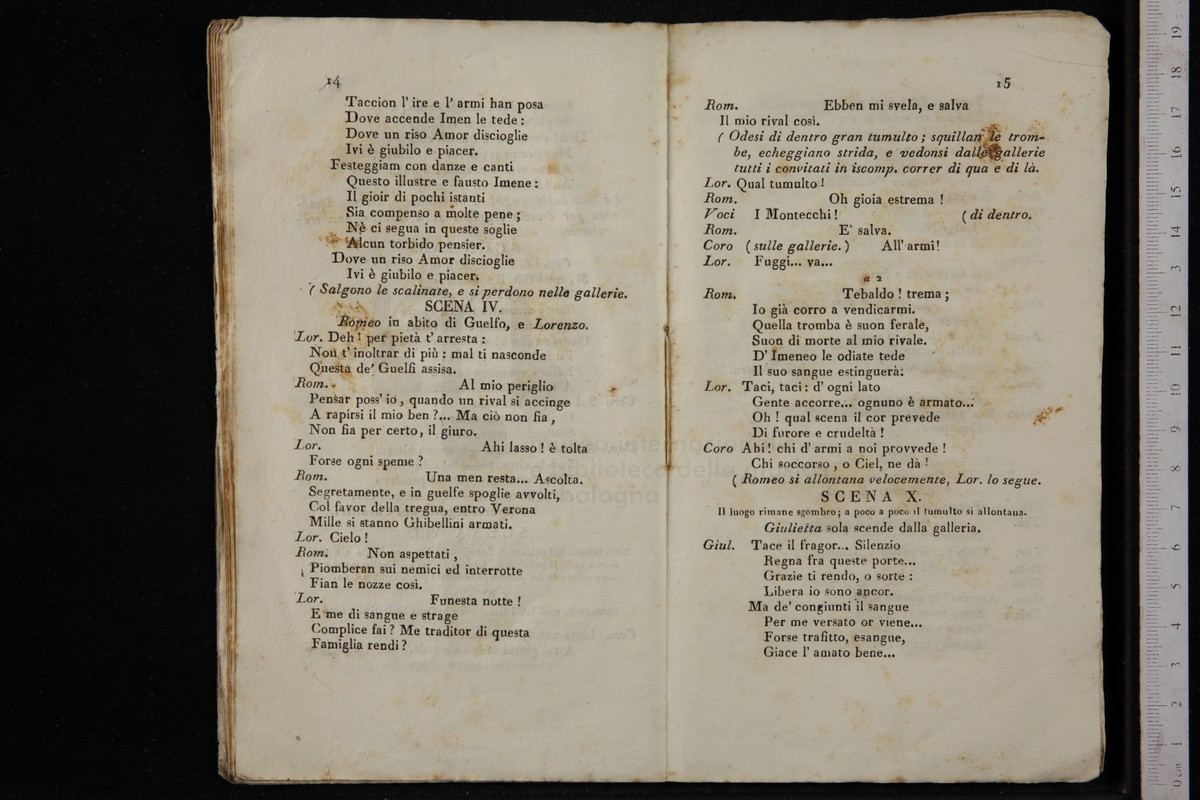 14
Taccion l' ire e l' armi han posa
Dove accende Imen le tede :
Dove un riso Amor discioglie
Ivi è giubilo e piacer.
Festeggiam con danze e canti
Questo illustre e fausto Imene :
Il gioir di pochi istanti
Sia compenso a molte pene ;
Nè ci segua in queste soglie
Alcun torbido pensier.
Dove un riso Amor discioglie
Ivi è giubilo e piacer.
( Salgono le scalinate, e si perdono nelle gallerie.
SCENA IV.
Romeo in abito di Guelfo, e Lorenzo.
Lor. Deh ! per pietà t' arresta :
Non t' inoltrar di più : mal ti nasconde
Questa de' Guelfi assisa.
Rom. Al mio periglio
Pensar poss' io, quando un rival si accinge
A rapirsi il mio ben ?... Ma ciò non fia,
Non fia per certo, il giuro.
Lor. Ahi lasso ! è tolta
Forse ogni speme ?
Rom. Una men resta... Ascolta.
Segretamente, e in guelfe spoglie avvolti,
Col favor della tregua, entro Verona
Mille si stanno Ghibellini armati.
Lor. Cielo !
Rom. Non aspettati,
Piomberan sui nemici ed interrotte
Fian le nozze così.
Lor. Funesta notte !
E me di sangue e strage
Complice fai ? Me traditor di questa
Famiglia rendi ?
15
Rom. Ebben mi svela, e salva
Il mio rival così.
( Odesi di dentro gran tumulto ; squillan le trom-
be, echeggiano strida, e vedonsi dalle gallerie
tutti i convitati in iscomp. correr di qua e di là.
Lor. Qual tumulto !
Rom. Oh gioia estrema !
Voci I Montecchi ! ( di dentro.
Rom. E' salva.
Coro ( sulle gallerie. ) All' armi !
Lor. Fuggi... va...
a 2
Rom. Tebaldo ! trema ;
Io già corro a vendicarmi.
Quella tromba è suon ferale,
Suon di morte al mio rivale.
D' Imeneo le odiate tede
Il suo sangue estinguerà:
Lor. Taci, taci : d' ogni lato
Gente accorre... ognuno è armato...
Oh ! qual scena il cor prevede
Di furore e crudeltà !
Coro Ahi ! chi d' armi a noi provvede !
Chi soccorso, o Ciel, ne dà !
( Romeo si allontana velocemente, Lor. lo segue.
SCENA X.
Il luogo rimane sgombro; a poco a poco il tumulto si allontana.
Giulietta sola scende dalla galleria.
Giul. Tace il fragor... Silenzio
Regna fra queste porte...
Grazie ti rendo, o sorte :
Libera io sono ancor.
Ma de' congiunti il sangue
Per me versato or viene...
Forse trafitto, esangue,
Giace l' amato bene...